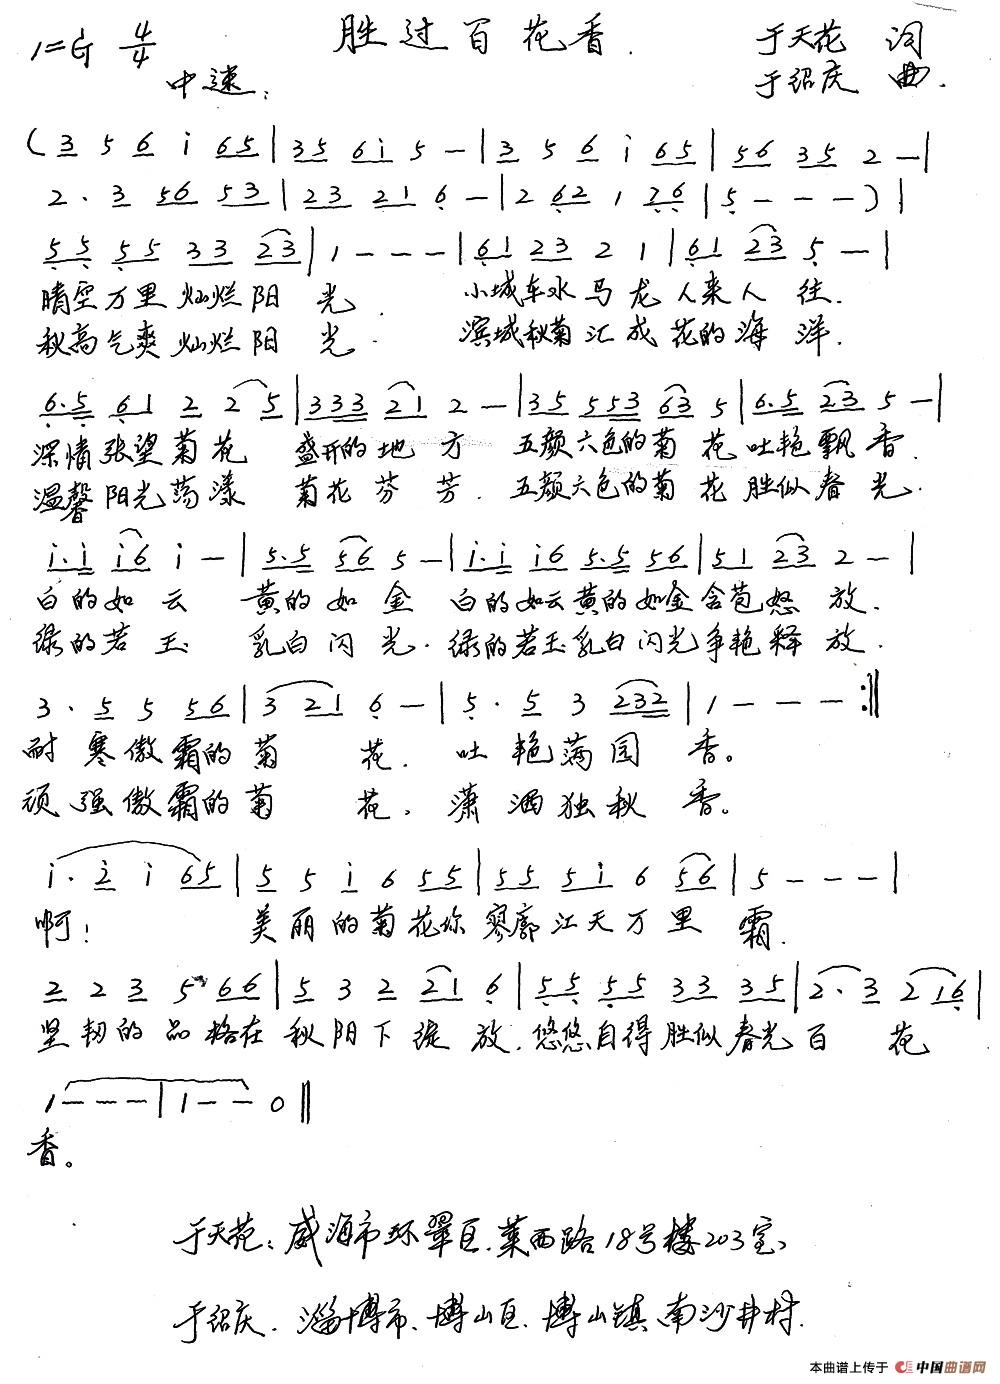 胜过百花香.
1=G 4/4 于天花 词
中速: 于绍庆 曲.
(3 5 6 i 65|35 6i 5 -|3 5 6 i 65|56 35 2 -|
2· 3 56 53|23 21 6 -|2 62 1 76|5 - - -)|
55 55 33 23|1 - - -|61 23 2 1|61 23 5 -|
晴空万里灿烂阳 光. 小城车水马龙人来人 往.
秋高气爽灿烂阳 光. 滨城秋菊汇成花的海 洋.
6·5 61 2 2 5|333 21 2 -|35 553 63 5|6·5 23 5 -|
深情张望菊花 盛开的地 方 五颜六色的菊 花吐艳飘 香.
温馨阳光荡漾 菊花芬 芳. 五颜六色的菊 花胜似春 光.
i·i i6 i -|5·5 56 5 -|i·i i6 5·5 56|51 23 2 -|
白的如 云 黄的如 金 白的如云黄的如金含苞怒 放.
绿的若 玉 乳白闪 光. 绿的若玉乳白闪光争艳释 放.
3· 5 5 56|3 21 6 -|5· 5 3 232|1 - - - :‖
耐 寒傲霜的菊 花. 吐 艳满园 香。
顽 强傲霜的菊 花, 潇 洒独秋 香。
i· 2 i 65|5 5 i 6 55|55 5i 6 56|5 - - -|
啊! 美丽的菊花你寥廓江天万里 霜.
2 2 3 5 66|5 3 2 21 6|55 55 33 35|2· 3 2 16|
坚韧的品格在秋阳下绽 放.悠悠自得胜似春光百 花
1 - - -|1 - - 0‖
香。
于天花: 威海市环翠区.莱西路18号楼203室、
于绍庆. 淄博市、博山区.博山镇南沙井村.
本曲谱上传于 中国曲谱网